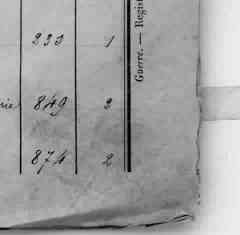 233 1
rie 849 2
874 2
Guerre. — Regis